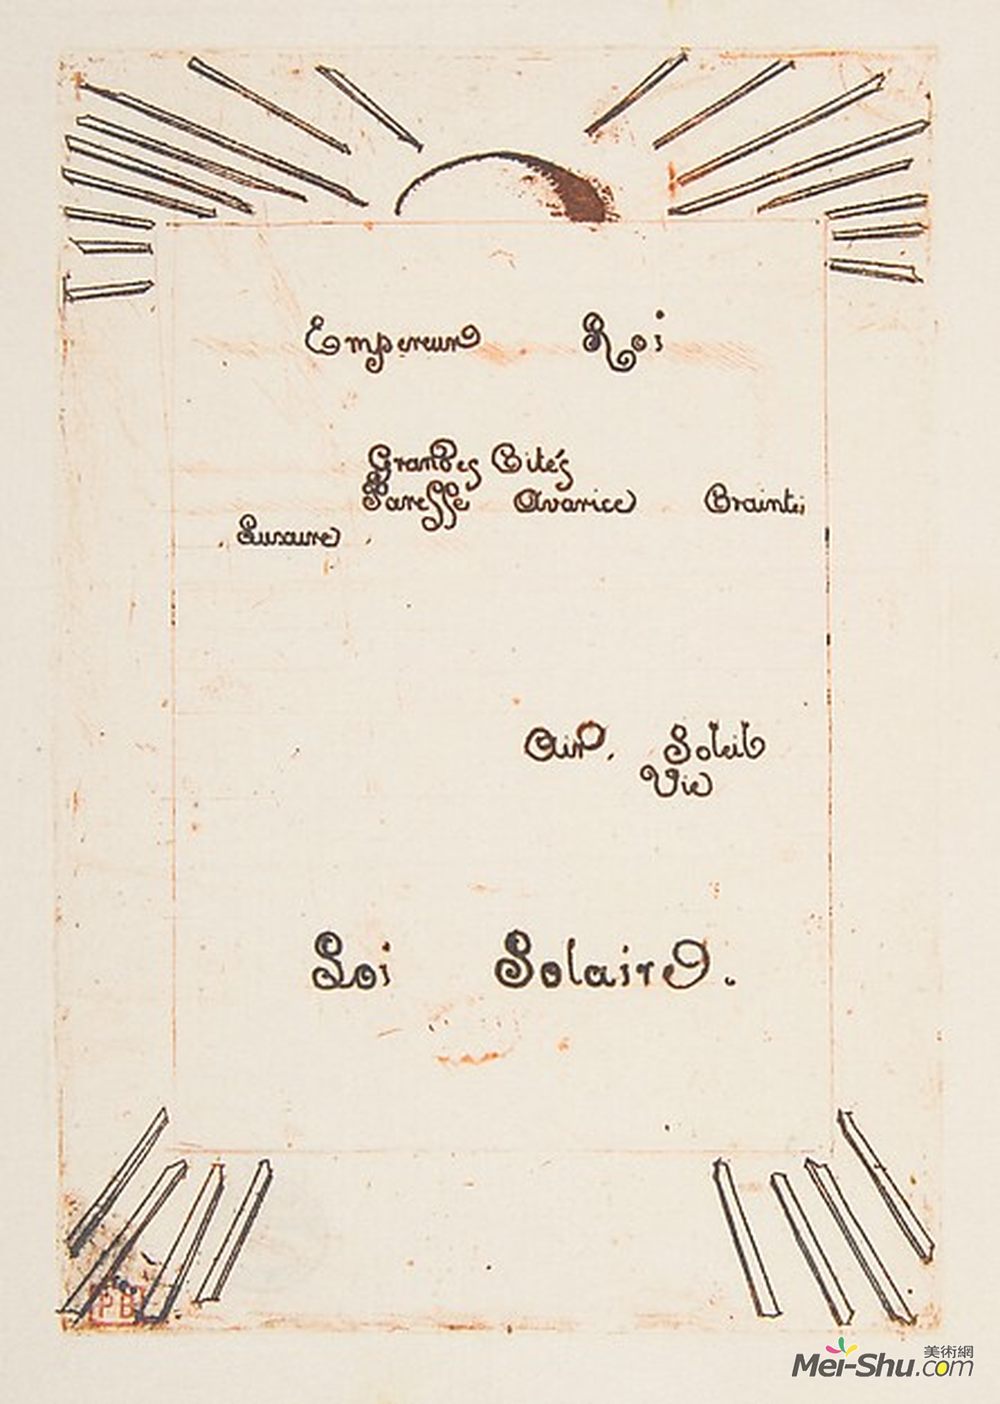 Empereur Roi
Grandes Cités
Paresse Avarice
Luxure
Air, Soleil
Vie
Loi Solaire.
PB
美術網
Mei-Shu.com